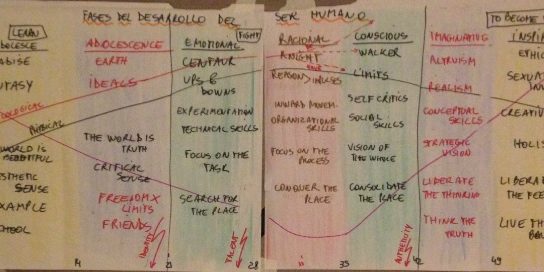 FASES DEL DESARROLLO DEL SER HUMANO
LEARN
FIGHT
TO BECOME
ADOLESCENCE
EARTH
IDEALS
THE WORLD IS
TRUTH
CRITICAL
SENSE
FREEDOM X
LIMITS
FRIENDS
EMOTIONAL
CENTAUR
UPS &
DOWNS
EXPERIMENTATION
TECHNICAL SKILLS
FOCUS ON THE
TASK
SEARCH FOR
THE PLACE
RACIONAL
KNIGHT
REASON > IMPULSES
INWARD MOVEM.
ORGANIZATIONAL
SKILLS
FOCUS ON THE
PROCESS
CONQUER THE
PLACE
CONSCIOUS
WALKER
LIMITS
SELF CRITICS
SOCIAL
SKILLS
VISION OF
THE WHOLE
CONSOLIDATE
THE PLACE
IMAGINATING
ALTRUISM
REALISM
CONCEPTUAL
SKILLS
STRATEGIC
VISION
LIBERATE
THE THINKING
THINK THE
TRUTH
CREATIV
HOLIS
LIBERA
THE FEE
LIVE TH
ESTHETIC
SENSE
14
21
28
35
42
49
IDENTITY
TALENT